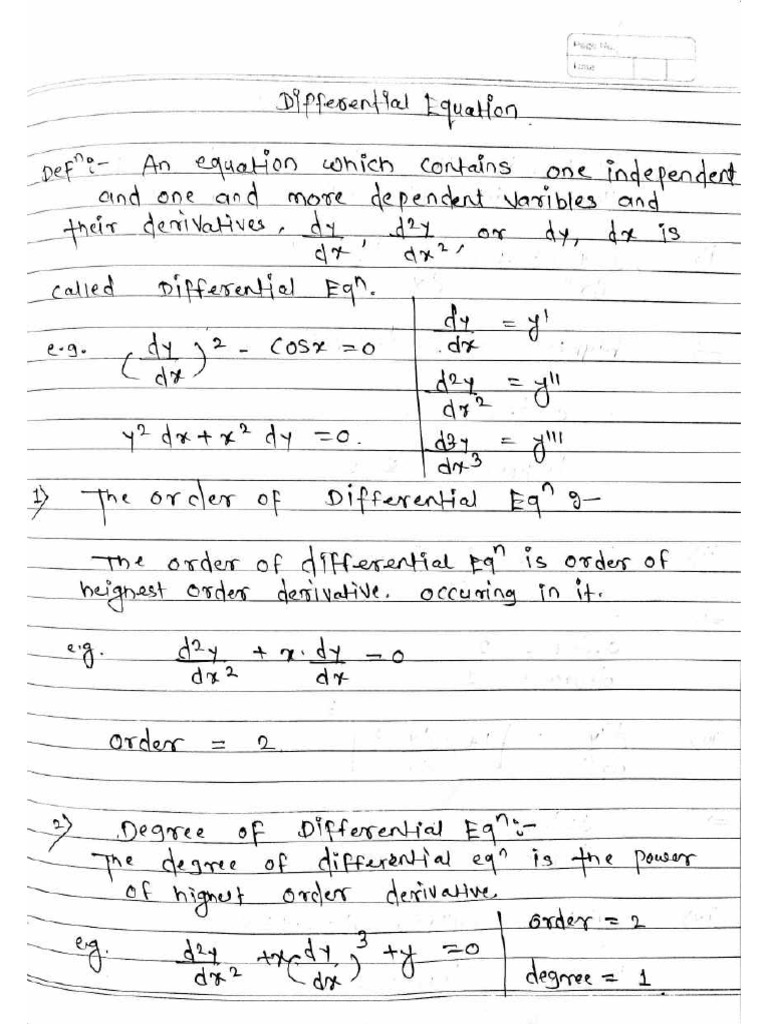 Page No.
Differential Equation.
Defⁿ:- An equation which contains one independent
and one and more dependent varibles and
their derivatives, dy/dx, d2y/dx², or dy, dx is
called Differential Eqⁿ.
e.g. (dy/dx)² - cosx = 0
dy/dx = y'
d2y/dx² = y''
y² dx + x² dy = 0.
d3y/dx³ = y'''
1) The order of Differential Eqⁿ :-
The order of differential Eqⁿ is order of
heighest order derivative. occuring in it.
e.g. d2y/dx² + x. dy/dx = 0
order = 2
2) Degree of Differential Eqⁿ:-
The degree of differential eqⁿ is the power
of highest order derivative.
eg. d2y/dx² + x(dy/dx)³ + y = 0
order = 2
degree = 1